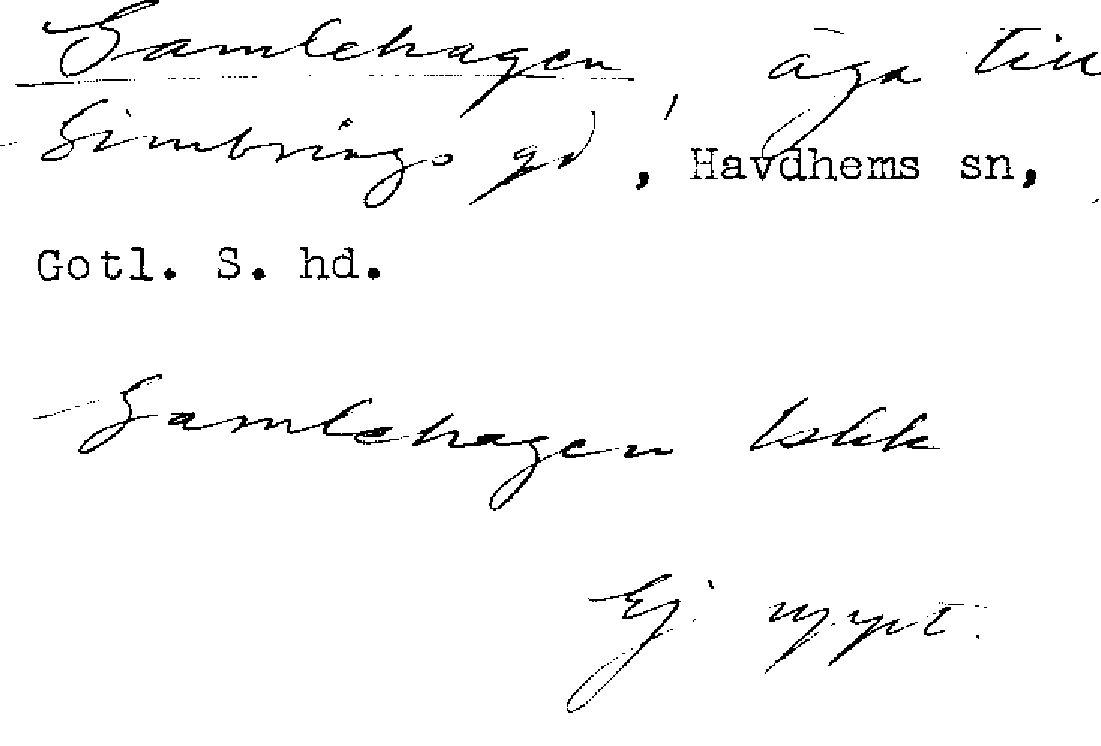 Gamlehagen, äga till
Simbrings gd, Havdhems sn,
Gotl. S. hd.
Gamlehagen
Ej uppt.